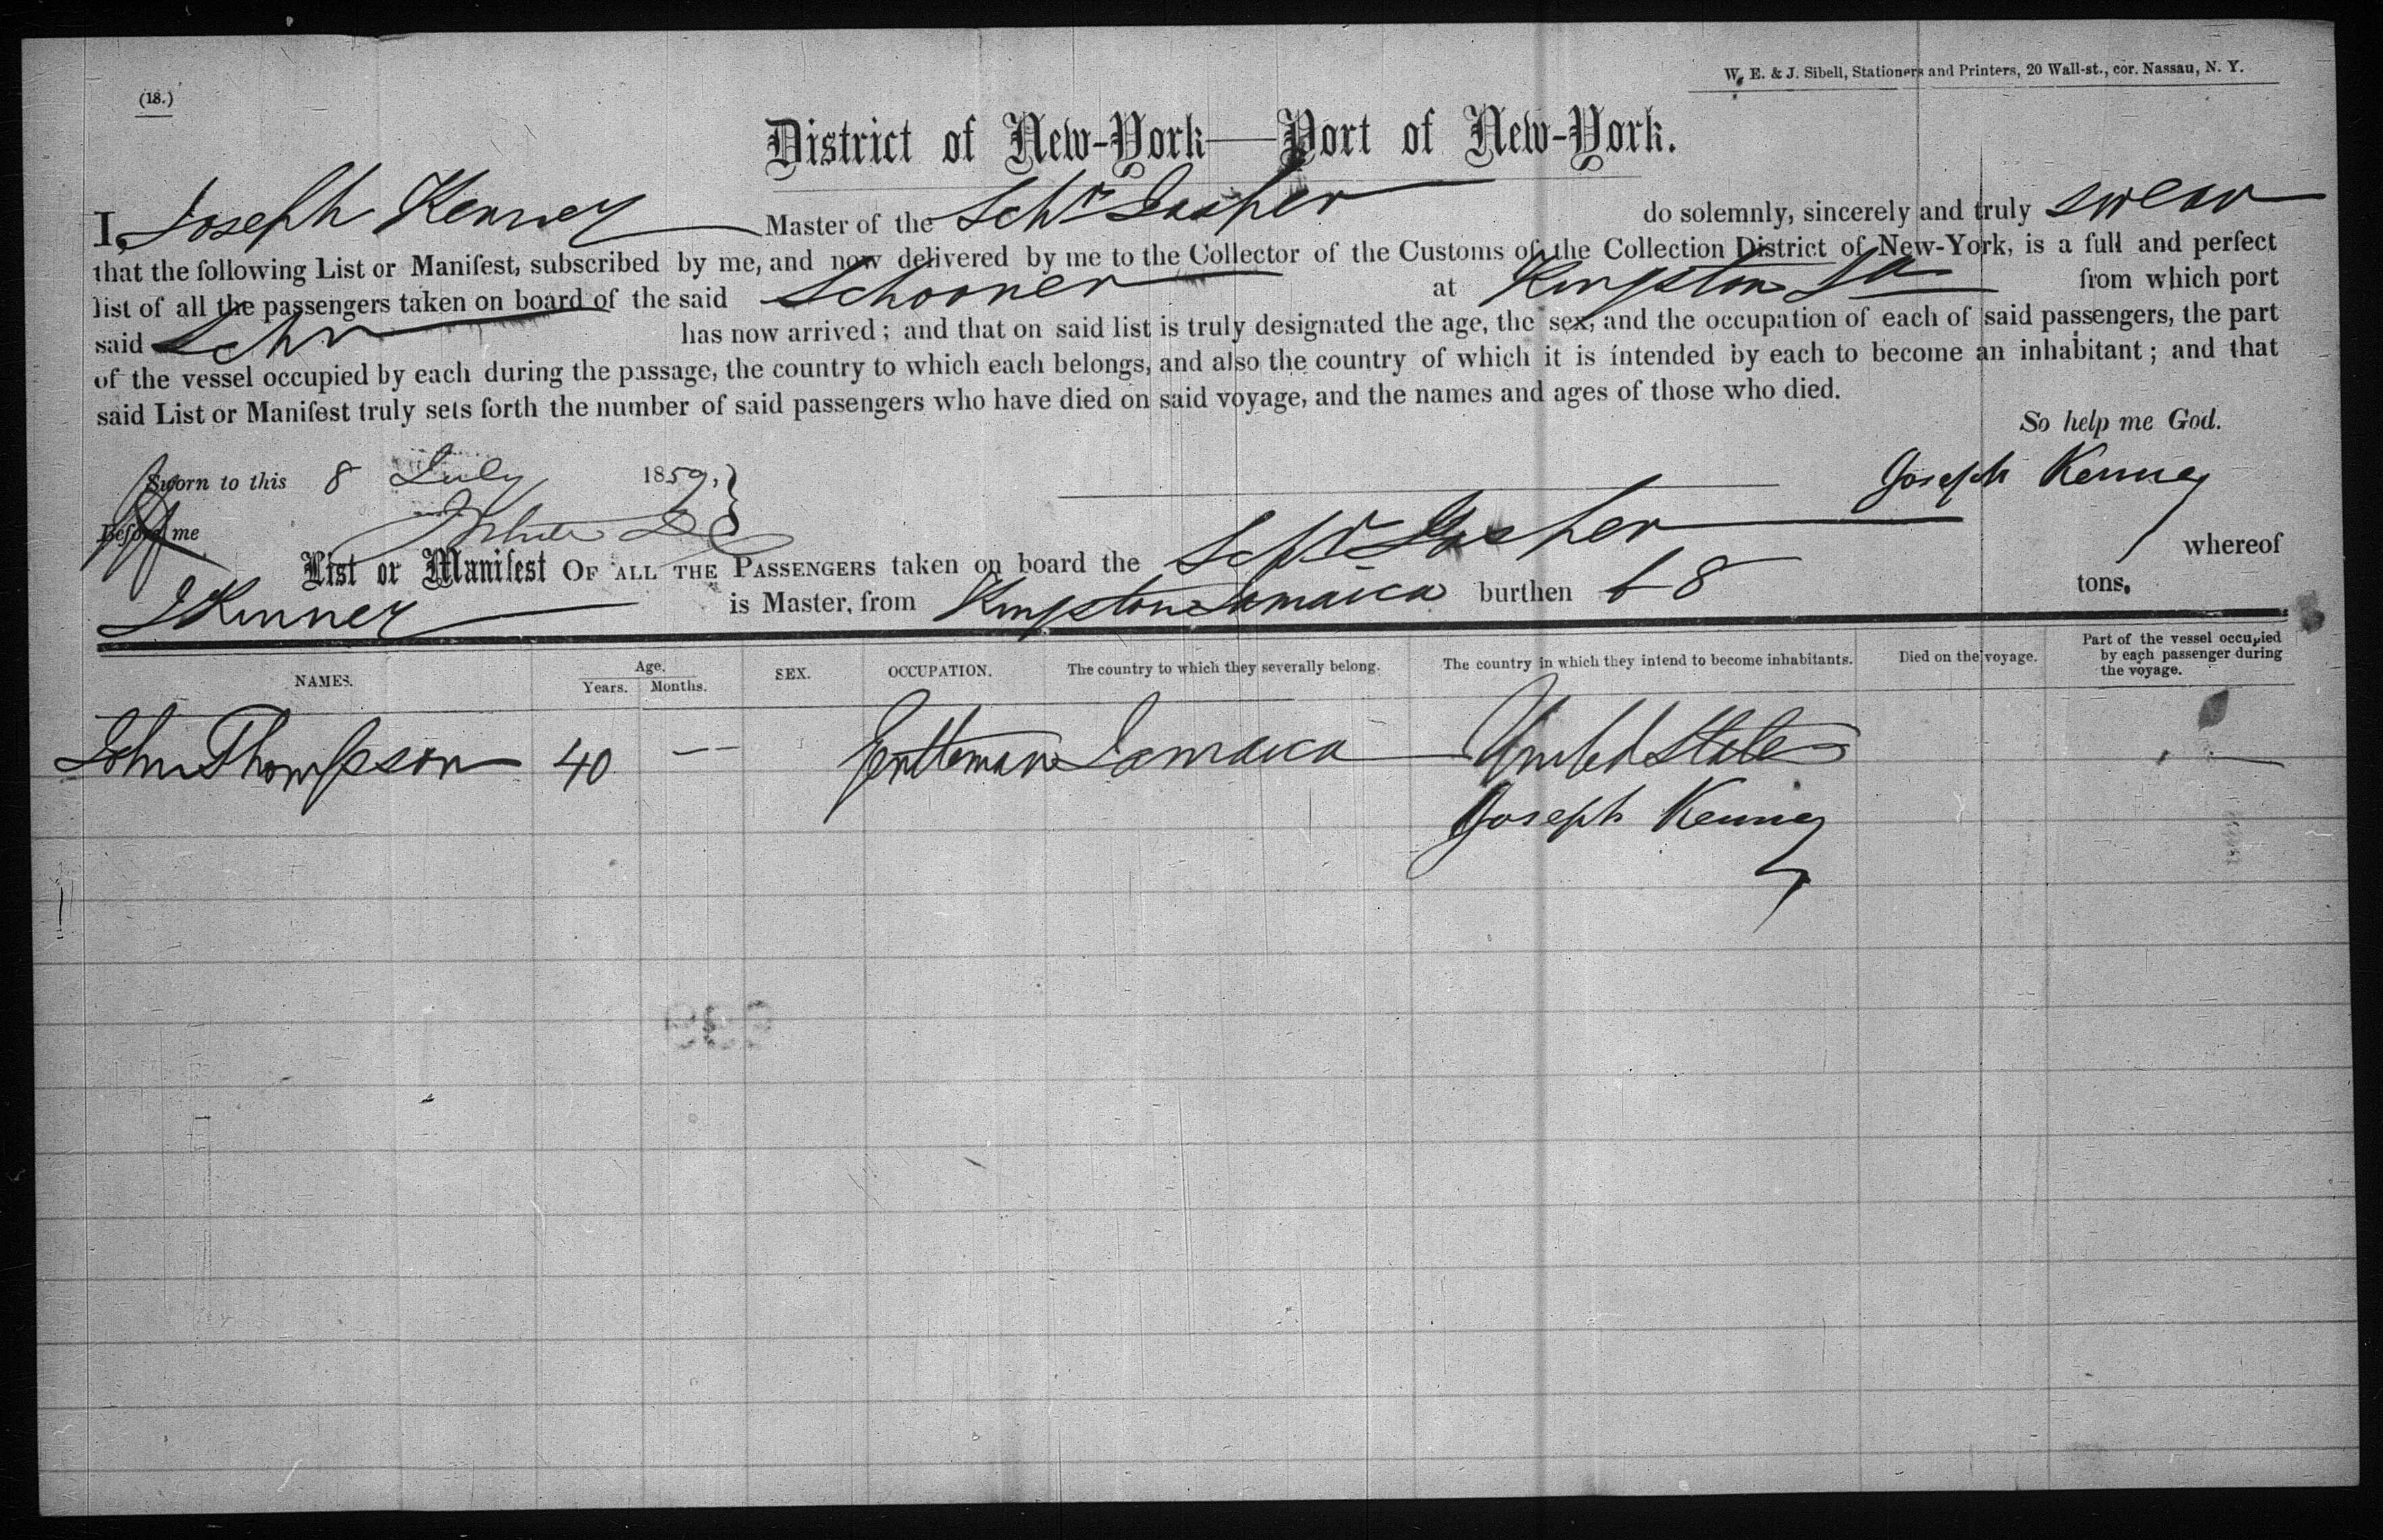 W. E. & J. Sibell, Stationers and Printers, 20 Wall-st., cor. Nassau, N. Y.
(18.)
District of New-York—Port of New-York.
I, Joseph Kenney Master of the Schr Jasper do solemnly, sincerely and truly swear
that the following List or Manifest, subscribed by me, and now delivered by me to the Collector of the Customs of the Collection District of New-York, is a full and perfect
list of all the passengers taken on board of the said Schooner at Kingston Ja from which port
said Schr has now arrived; and that on said list is truly designated the age, the sex, and the occupation of each of said passengers, the part
of the vessel occupied by each during the passage, the country to which each belongs, and also the country of which it is intended by each to become an inhabitant; and that
said List or Manifest truly sets forth the number of said passengers who have died on said voyage, and the names and ages of those who died.
So help me God.
Sworn to this 8 July 1859, Joseph Kenney
Before me
List or Manifest OF ALL THE PASSENGERS taken on board the Schr Jasper whereof
J Kenney is Master, from Kingston Jamaica burthen 68 tons.
NAMES. Age. Years. Months. SEX. OCCUPATION. The country to which they severally belong. The country in which they intend to become inhabitants. Died on the voyage. Part of the vessel occupied by each passenger during the voyage.
John Thompson 40 — Gentleman Jamaica United States
Joseph Kenney